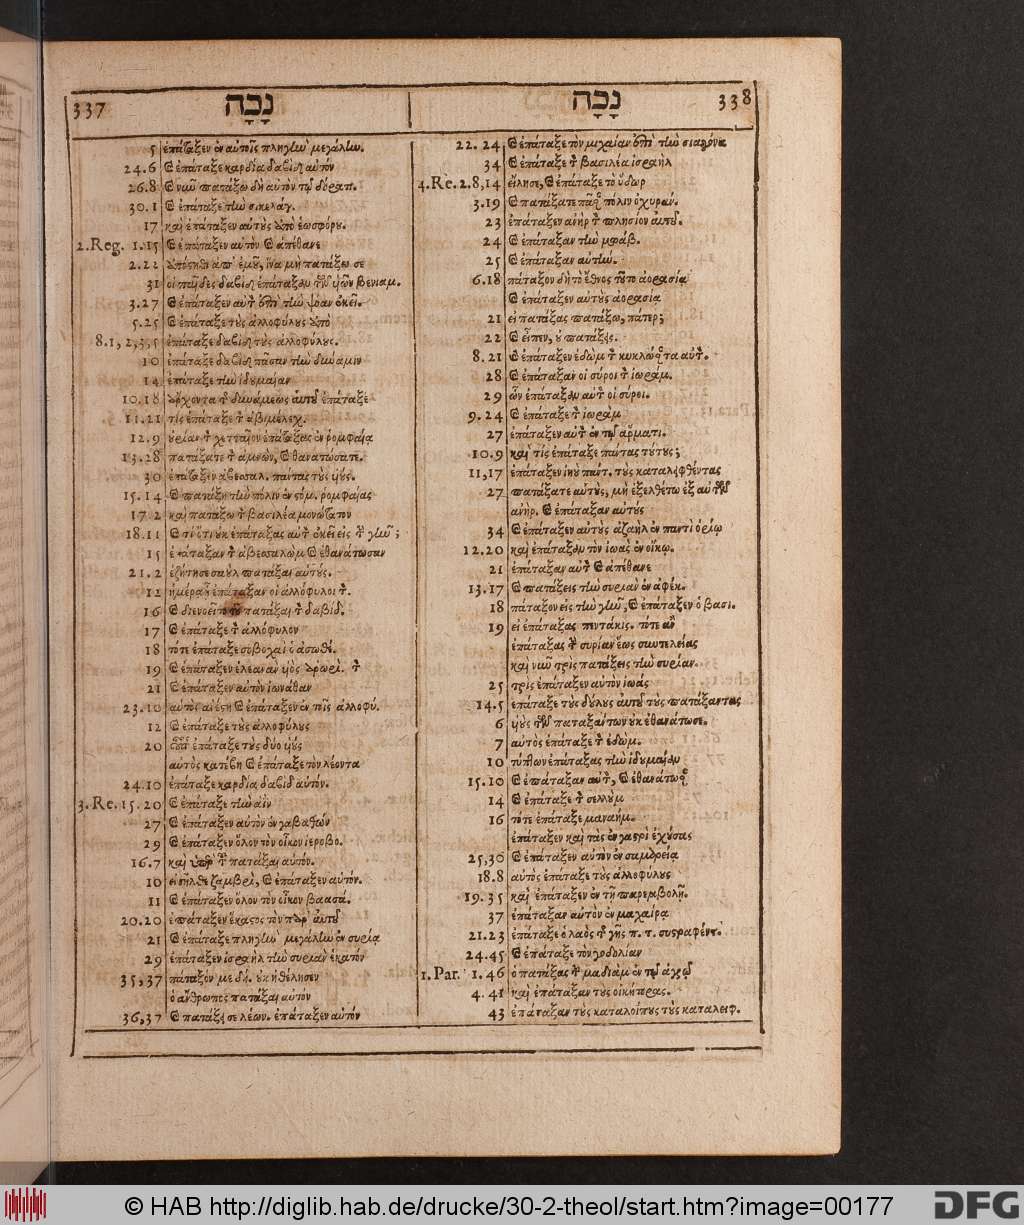 337 נָכָה
5 ἐπάταξεν ἐν αὐτοῖς πληγὴν μεγάλην.
24.6 Καὶ ἐπάταξε καρδία δαβὶδ αὐτὸν
26.8 Καὶ νῦν πατάξω δὴ αὐτὸν τῷ δόρατ.
30.1 Καὶ ἐπάταξε τὴν σικελάγ.
17 καὶ ἐπάταξεν αὐτοὺς ἀπὸ ἑωσφόρου.
2.Reg. 1.15 Καὶ ἐπάταξεν αὐτὸν Καὶ ἀπέθανε
2.22 ἀπόστηθι ἀπ᾽ ἐμοῦ, ἵνα μὴ πατάξω σε
31 οἱ παῖδες δαβὶδ ἐπάταξαν τῶν υἱῶν βενιαμ.
3.27 Καὶ ἐπάταξεν αὐτὸν ἐπὶ τὴν ψόαν ἐκεῖ.
5.25 Καὶ ἐπάταξε τοὺς ἀλλοφύλους ἀπὸ
8.1,2,3,5 ἐπάταξε δαβὶδ τοὺς ἀλλοφύλους.
10 ἐπάταξε δαβὶδ πᾶσαν τὴν δύναμιν
14 ἐπάταξε τὴν ἰδυμαίαν
10.18 ἄρχοντα τῆς δυνάμεως αὐτοῦ ἐπάταξε
11.21 τίς ἐπάταξε τὸν ἀβιμέλεχ.
12.9 οὐρίαν τὸν χετταῖον ἐπάταξας ἐν ῥομφαίᾳ
13.28 πατάξατε τὸν ἀμνὼν, Καὶ θανατώσατε.
30 ἐπάταξεν ἀβεσαλ. πάντας τοὺς υἱούς.
15.14 Καὶ πατάξῃ τὴν πόλιν ἐν στόμ. ῥομφαίας
17.2 καὶ πατάξω τὸν βασιλέα μονώτατον
18.11 Καὶ τί ὅτι οὐκ ἐπάταξας αὐτὸν ἐκεῖ εἰς τὴν γῆν;
15 ἐπάταξαν τὸν ἀβεσαλὼμ Καὶ ἐθανάτωσαν
21.2 ἐζήτησε σαοὺλ πατάξαι αὐτούς.
12 ἡμέρᾳ ἐπάταξαν οἱ ἀλλόφυλοι τὸν.
16 Καὶ διενοεῖτο τοῦ πατάξαι τὸν δαβίδ.
17 Καὶ ἐπάταξε τὸν ἀλλόφυλον
18 τότε ἐπάταξε σοβοχαὶ ὁ ἀσωθί.
19 Καὶ ἐπάταξεν ἐλεανὰν υἱὸς ἀρωρὶ. τὸν
21 Καὶ ἐπάταξεν αὐτὸν ἰωνάθαν
23.10 αὐτὸς ἀνέστη Καὶ ἐπάταξεν ἐν τοῖς ἀλλοφύ.
12 Καὶ ἐπάταξε τοὺς ἀλλοφύλους
20 οὗτος ἐπάταξε τοὺς δύο υἱοὺς
αὐτὸς κατέβη Καὶ ἐπάταξε τὸν λέοντα
24.10 ἐπάταξε καρδία δαβὶδ αὐτόν.
3.Re. 15.20 Καὶ ἐπάταξε τὴν αἲν
27 Καὶ ἐπάταξεν αὐτὸν ἐν γαβαθὼν
29 Καὶ ἐπάταξεν ὅλον τὸν οἶκον ἱεροβο.
16.7 καὶ ὑπὲρ τοῦ πατάξαι αὐτόν.
10 εἰσῆλθε ζαμβρὶ, Καὶ ἐπάταξεν αὐτόν.
11 Καὶ ἐπάταξεν ὅλον τὸν οἶκον βαασά.
20.20 ἐπάταξεν ἕκαστος τὸν παρ᾽ αὐτοῦ
21 Καὶ ἐπάταξε πληγὴν μεγάλην ἐν συρίᾳ
29 ἐπάταξεν ἰσραὴλ τὴν συρίαν ἑκατὸν
35,37 πάταξον με δή. οὐκ ἠθέλησεν
ὁ ἄνθρωπος πατάξαι αὐτόν
36,37 Καὶ πατάξει σε λέων. ἐπάταξεν αὐτόν
נָכָה 338
22.24 Καὶ ἐπάταξε τὸν μιχαίαν ἐπὶ τὴν σιαγόνα
34 Καὶ ἐπάταξε τὸν βασιλέα ἰσραὴλ
4.Re. 2.8,14 εἵλησε, Καὶ ἐπάταξε τὸ ὕδωρ
3.19 Καὶ πατάξατε πᾶσαν πόλιν ὀχυράν.
23 ἐπάταξεν ἀνὴρ τὸν πλησίον αὐτοῦ.
24 Καὶ ἐπάταξαν τὴν μωάβ.
25 Καὶ ἐπάταξαν αὐτήν.
6.18 πάταξον δὴ τὸ ἔθνος τοῦτο ἀορασίᾳ
Καὶ ἐπάταξεν αὐτοὺς ἀορασίᾳ
21 εἰ πατάξας πατάξω, πάτερ;
22 Καὶ εἶπεν, οὐ πατάξεις.
8.21 Καὶ ἐπάταξεν ἐδὼμ τὸν κυκλώσαντα αὐτόν.
28 Καὶ ἐπάταξαν οἱ σύροι τὸν ἰωράμ.
29 ὧν ἐπάταξαν αὐτὸν οἱ σύροι.
9.24 Καὶ ἐπάταξε τὸν ἰωρὰμ
27 ἐπάταξεν αὐτὸν ἐν τῷ ἅρματι.
10.9 καὶ τίς ἐπάταξε πάντας τούτους;
11,17 ἐπάταξεν ἰηοὺ πάντ. τοὺς καταλειφθέντας
27 πατάξατε αὐτοὺς, μὴ ἐξελθέτω ἐξ αὐτῶν
ἀνήρ. Καὶ ἐπάταξαν αὐτοὺς
34 Καὶ ἐπάταξεν αὐτοὺς ἀζαὴλ ἐν παντὶ ὁρίῳ
12.20 καὶ ἐπάταξαν τὸν ἰωὰς ἐν οἴκῳ.
21 ἐπάταξαν αὐτὸν Καὶ ἀπέθανε
13.17 Καὶ πατάξεις τὴν συρίαν ἐν ἀφέκ.
18 πάταξον εἰς τὴν γῆν, Καὶ ἐπάταξεν ὁ βασι.
19 εἰ ἐπάταξας πεντάκις. τότε ἂν
ἐπάταξας τὴν συρίαν ἕως συντελείας
καὶ νῦν τρὶς πατάξεις τὴν συρίαν.
25 τρὶς ἐπάταξεν αὐτὸν ἰωάς
14.5 ἐπάταξε τοὺς δούλους αὐτοῦ τοὺς πατάξαντας
6 υἱοὺς τῶν παταξάντων οὐκ ἐθανάτωσε.
7 αὐτὸς ἐπάταξε τὸν ἐδώμ.
10 τύπτων ἐπάταξας τὴν ἰδυμαίαν
15.10 Καὶ ἐπάταξαν αὐτὸν, Καὶ ἐθανάτωσαν
14 Καὶ ἐπάταξε τὸν σελλοὺμ
16 τότε ἐπάταξε μαναήμ.
ἐπάταξεν καὶ τὰς ἐν γαστρὶ ἐχούσας
25,30 Καὶ ἐπάταξεν αὐτὸν ἐν σαμαρείᾳ
18.8 αὐτὸς ἐπάταξε τοὺς ἀλλοφύλους
19.35 καὶ ἐπάταξεν ἐν τῇ παρεμβολῇ.
37 ἐπάταξαν αὐτὸν ἐν μαχαίρᾳ
21.23 ἐπάταξε ὁ λαὸς τῆς γῆς π. τ. συστραφέντ.
24.45 Καὶ ἐπάταξε τὸν γοδολίαν
1.Par. 1.46 ὁ πατάξας τὸν μαδιὰμ ἐν τῷ ἀγρῷ
4.41 καὶ ἐπάταξαν τοὺς οἰκήτορας.
43 ἐπάταξαν τοὺς καταλοίπους τοὺς καταλειφ.
© HAB http://diglib.hab.de/drucke/30-2-theol/start.htm?image=00177 DFG